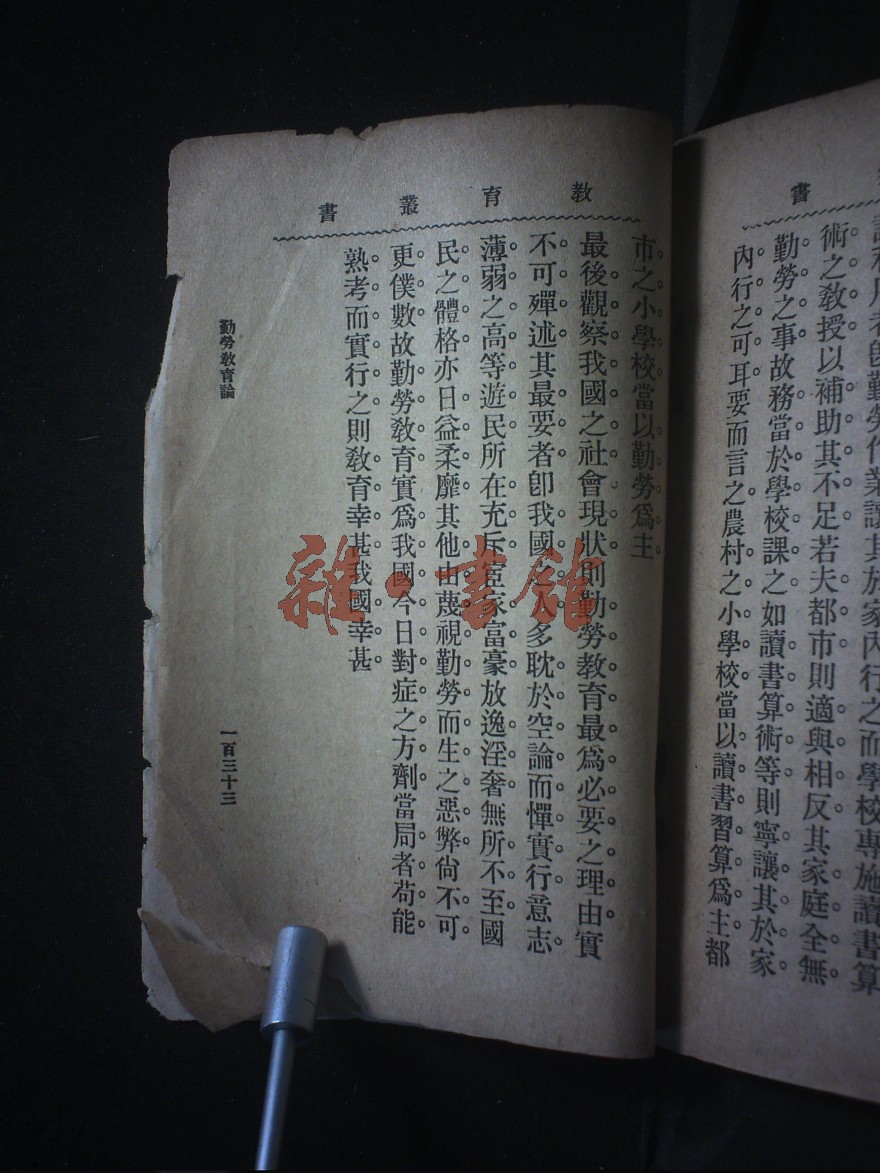 書
利用者卽勤勞作業讓其於家內行之而學校專施讀書算
術之敎授以補助其不足若夫都市則適與相反其家庭全無
勤勞之事故務當於學校課之如讀書算術等則寧讓其於家
內行之可耳要而言之農村之小學校當以讀書習算爲主都
教育叢書
市之小學校當以勤勞爲主
最後觀察我國之社會現狀則勤勞敎育最爲必要之理由實
不可殫述其最要者卽我國之人多耽於空論而憚實行意志
薄弱之高等遊民所在充斥宦家富豪放逸淫奢無所不至國
民之體格亦日益柔靡其他由蔑視勤勞而生之惡弊尙不可
更僕數故勤勞敎育實爲我國今日對症之方劑當局者苟能
熟考而實行之則敎育幸甚我國幸甚
勤勞敎育論
一百三十三
雜·書館